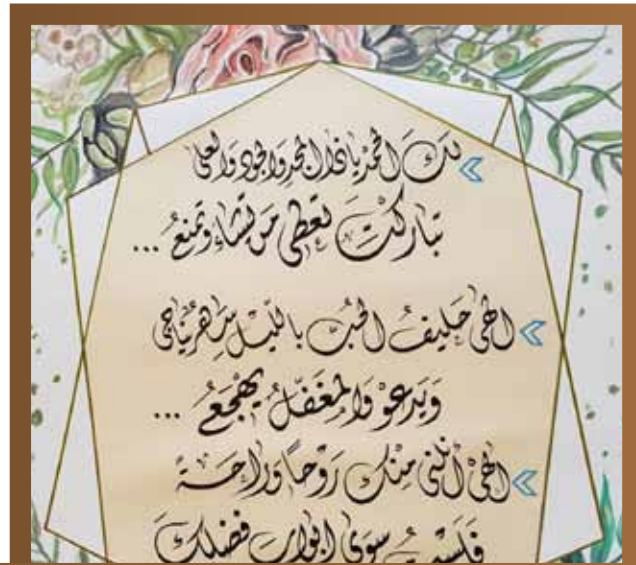 لكَ الحمدُ ياذا المجدِ والجودِ والعلىٰ
تباركتَ تعطي مَن تشاءُ وتمنعُ ...
الهي حليفُ الحُبِّ بالليل ساهرٌ يناجي
وَيَدعوْ وَالمُغَفَّلُ يَهْجَعُ ...
الهيْ أنلني منكَ رَوْحاً وراحةً
فلستُ سوىٰ ابوابِ فضلكَ